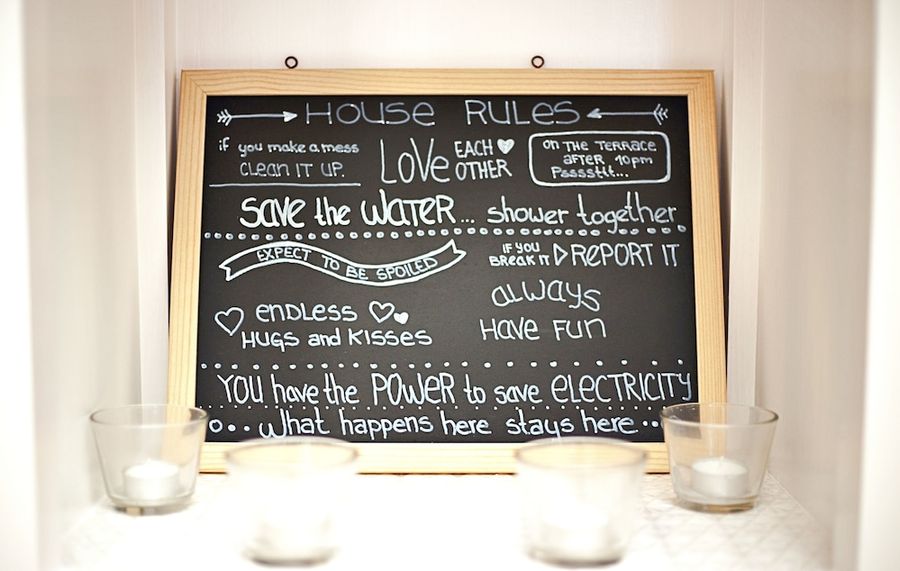 HOUSE RULES
if you make a mess
CLEAN IT UP.
LOVE EACH OTHER
ON THE TERRACE
AFTER 10pm
Psssstit...
SAVE the WATER... shower together
EXPECT TO BE SPOILED
IF YOU BREAK IT REPORT IT
ENDLESS
HUGS and KISSES
ALWAYS
HAVE FUN
YOU have the POWER to save ELECTRICITY
What happens here stays here...